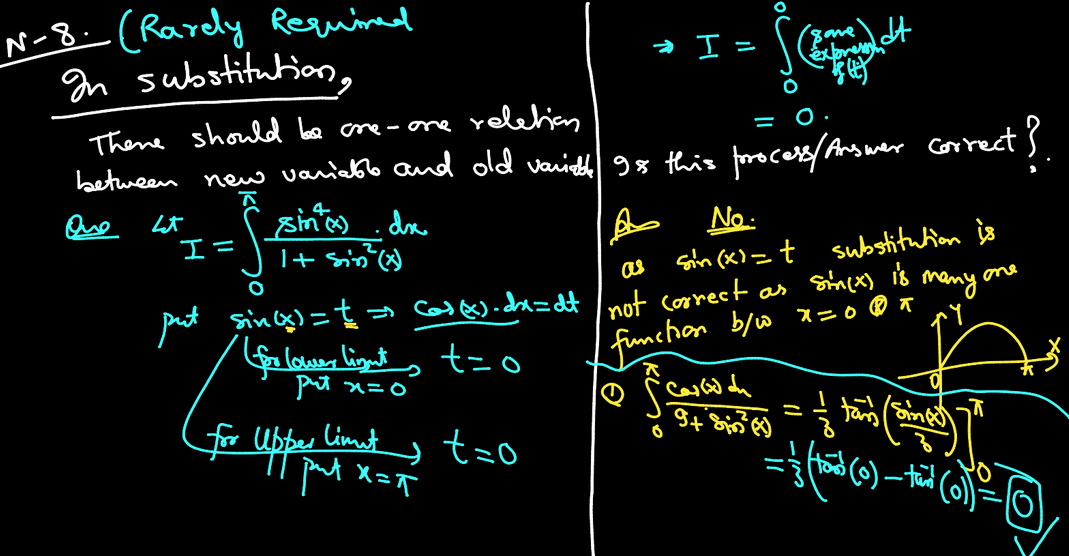 N-8. (Rarely Required
In substitution,
There should be one-one relation
between new variable and old variable
Que Let I = ∫₀^π sin⁴(x)/(1 + sin²(x)) . dx
put sin(x) = t ⇒ cos(x).dx = dt
for lower limit put x = 0 → t = 0
for Upper limit put x = π → t = 0
⇒ I = ∫₀⁰ (some expression of (t)) dt
= 0.
Is this process/Answer correct?
No.
as sin(x) = t substitution is
not correct as sin(x) is many one
function b/w x = 0 & π
Y
X
0
π
① ∫₀^π cos(x) dx/(9 + sin²(x)) = 1/3 tan⁻¹(sin(x)/3)]₀^π
= 1/3 (tan⁻¹(0) - tan⁻¹(0)) = 0